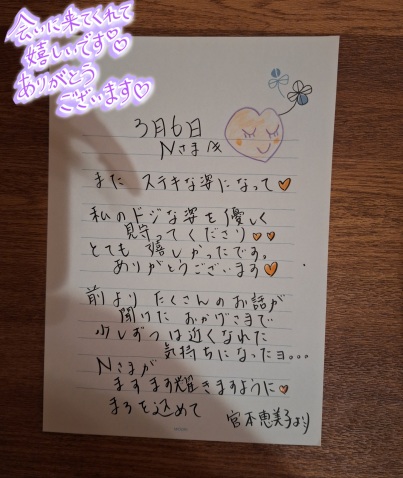 会いに来てくれて
嬉しいです♡
ありがとう
ございます♡
3月6日
Nさま
また ステキな姿になって♡
私のドジな姿も優しく
見守ってくださり♡♡
とても 嬉しかったです。
ありがとうございます♡
前より たくさんのお話が
聞けた おかげさまで
少しずつは近くなれた
気持ちになったョ...
Nさまが
ますます輝きますように♡
まろを込めて
宮本恵美子より